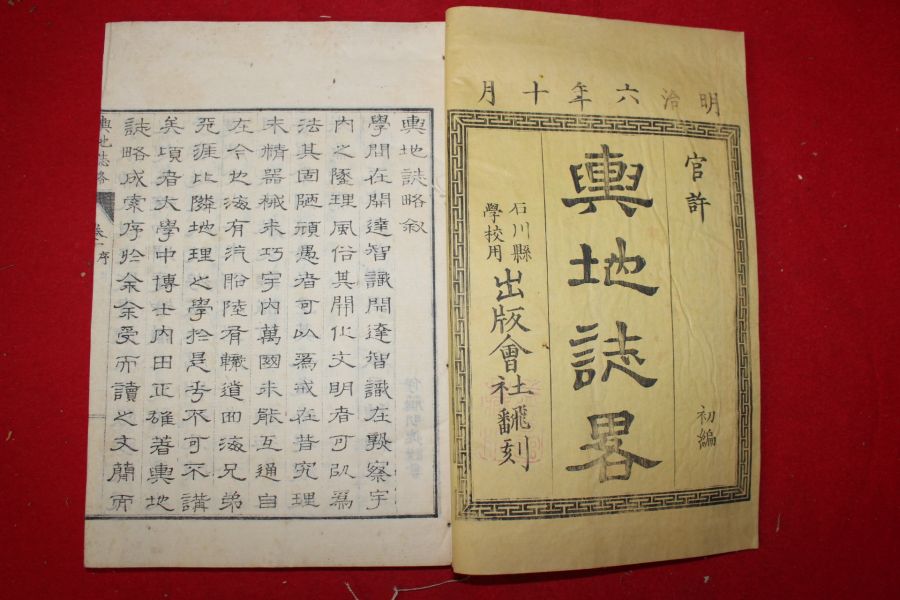 明治六年十月
官許
初編
輿地誌畧
石川縣
學校用
出版會社飜刻
輿地誌略叙
學問在開達智識開達智識在觀察宇
内之墬理風俗其開化文明者可以爲
法其固陋頑愚者可以爲戒在昔究理
未精器械未巧宇内萬國未能互通自
在今也海有汽船陸有轍道四海兄弟
天涯比隣地理之學於是乎不可不講
矣頃者大學中博士内田正雄著輿地
誌略成索序於余余受而讀之文簡而
輿地誌略
卷一
序